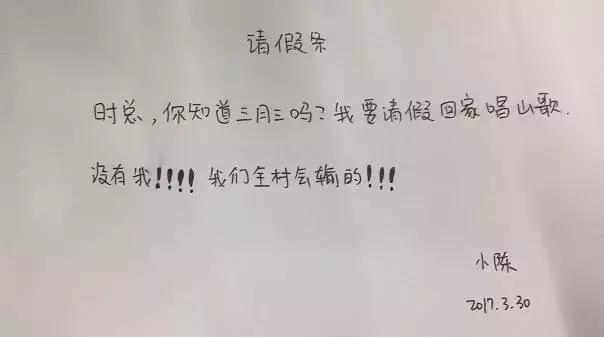 请假条
时总，你知道三月三吗？我要请假回家唱山歌.
没有我！！！！我们全村会输的！！！
小陈
2017.3.30